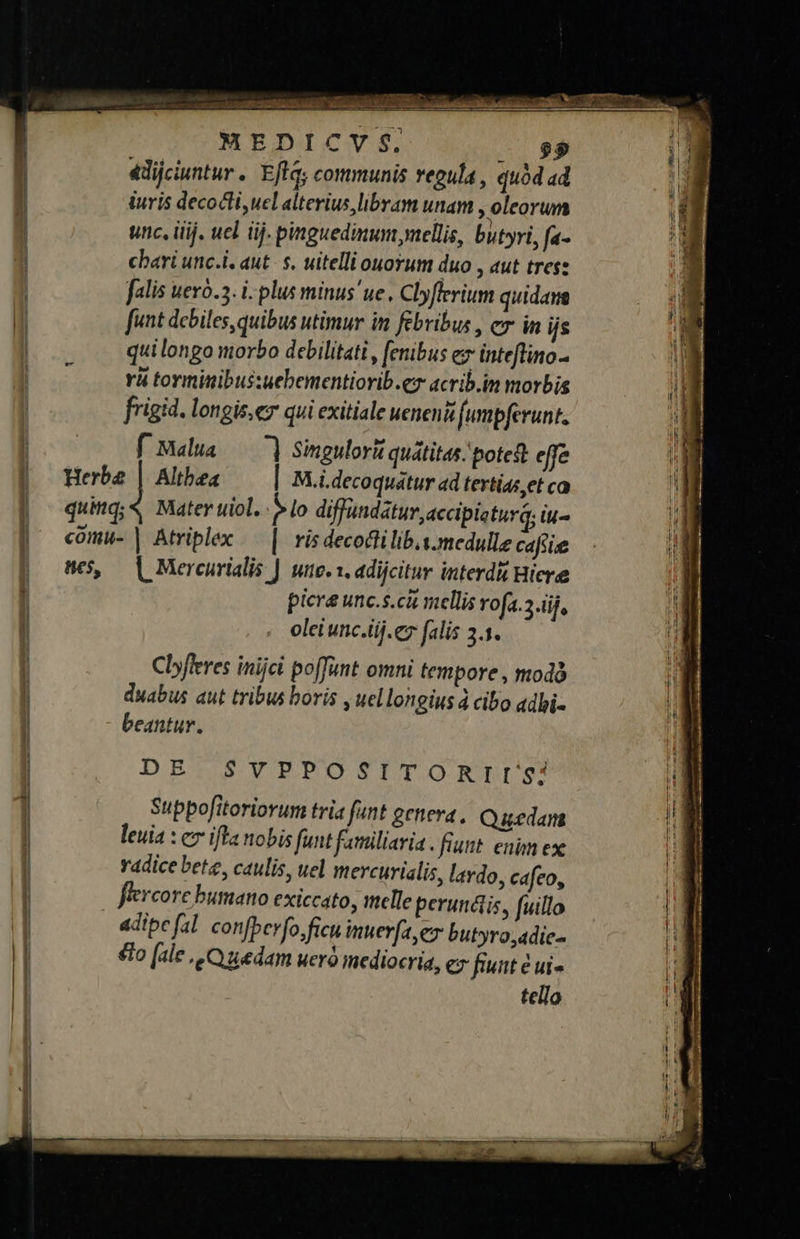 MEDICVS. 99
adijciuntur. Estq; communis regula, quòd ad
iuris decocti, uel alterius, libram unam, oleorum
unc. iiij. uel iij. pinguedinum, mellis, butyri, sa-
chari unc.i. aut s. uitelli ouorum duo, aut tres:
salis uerò.ʒ.i. plus minus'ue. Clysterium quidam
sunt debiles, quibus utimur in febribus, & in ijs
qui longo morbo debilitati, senibus & intestino-
rũ torminibus: uehementiorib. & acrib. in morbis
frigid. longis, & qui exitiale uenenũ sumpserunt.
{ Malua } Singulorũ quãtitas potest esse
Herbæ | Althea | M.i. decoquãtur ad tertias, et co
quinq; { Mater uiol. } lo diffundãtur, accipiaturq́; iu-
cõmu- | Atriplex | ris decocti lib.1. medullæ cassiæ
nes, { Mercurialis } unc.1. adijcitur interdũ Hieræ
picræ unc.s. cũ mellis rosa.ʒ.iij.
olei unc.iij. & salis ʒ.1.
Clysteres inijci possunt omni tempore, modò
duabus aut tribus horis, uel longius à cibo adhi-
beantur.
DE SVPPOSITORIIS:
Suppositoriorum tria sunt genera. Quædam
leuia: & ista nobis sunt familiaria. fiunt enim ex
radice betæ, caulis, uel mercurialis, lardo, caseo,
stercore humano exiccato, melle perunctis, suillo
adipe sal consperso, ficu inuersa, & butyro, adie-
cto sale. Quædam uerò mediocria, & fiunt è ui-
tello